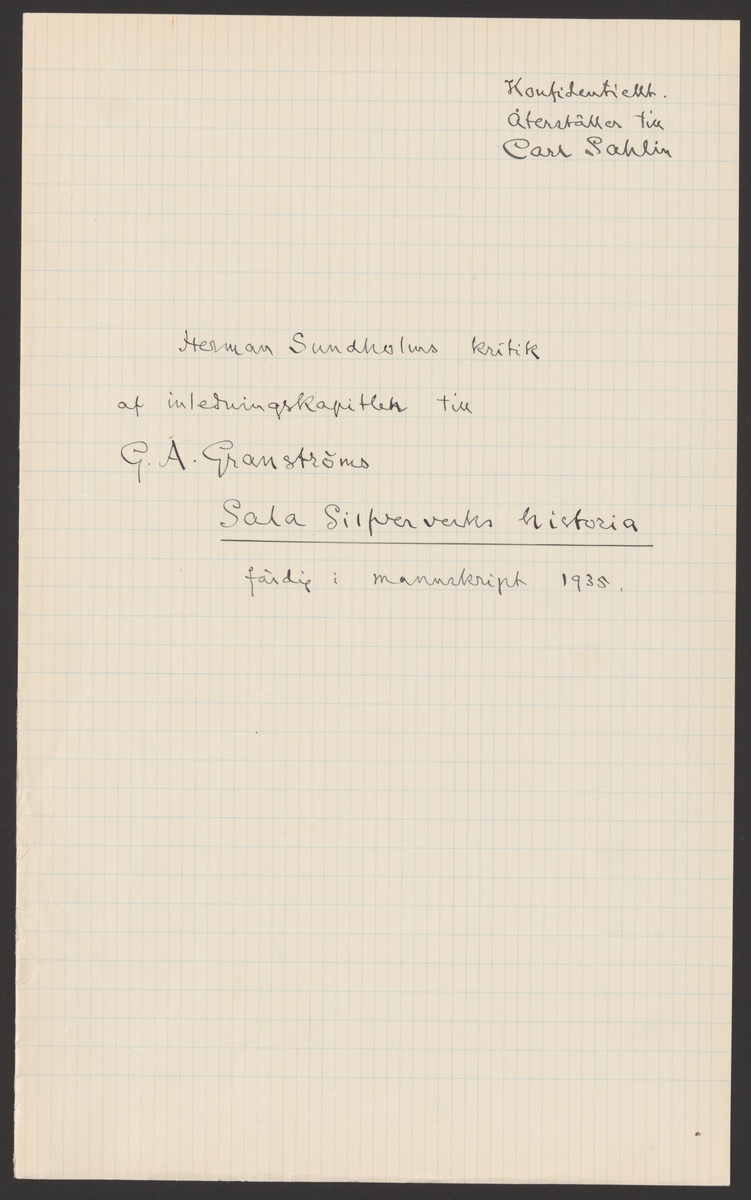 Konfidentiellt.
Återställes till
Carl Sahlin
Herman Sundholms kritik
af inledningskapitlen till
G. A. Granströms
Sala Silfververks historia
färdig i manuskript 1935.